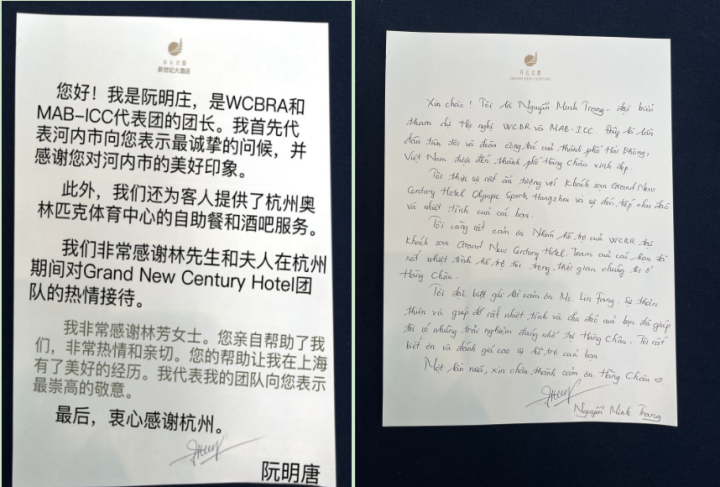 开元名都
新世纪大酒店
您好！我是阮明庄，是WCBRA和
MAB-ICC代表团的团长。我首先代
表河内市向您表示最诚挚的问候，并
感谢您对河内市的美好印象。
此外，我们还为客人提供了杭州奥
林匹克体育中心的自助餐和酒吧服务。
我们非常感谢林先生和夫人在杭州
期间对Grand New Century Hotel团
队的热情接待。
我非常感谢林芳女士。您亲自帮助了我
们，非常热情和亲切。您的帮助让我在上海
有了美好的经历。我代表我的团队向您表示
最崇高的敬意。
最后，衷心感谢杭州。
阮明唐
GRAND NEW CENTURY
Xin chào! Tôi là Nguyễn Minh Trang - đại biểu
tham dự Hội nghị WCBR và MAB-ICC. Đây là lần
đầu tiên tôi và đoàn công tác của thành phố Hải Phòng,
Việt Nam được đến thành phố Hàng Châu xinh đẹp.
Tôi thực sự rất ấn tượng với Khách sạn Grand New
Century Hotel Olympic Sports Hangzhou và sự đón tiếp chu đáo
và nhiệt tình của các bạn.
Tôi cũng rất cảm ơn Nhóm hỗ trợ của WCBR tại
khách sạn Grand New Century Hotel. Team của các bạn đã
rất nhiệt tình hỗ trợ tôi trong thời gian chúng tôi ở
Hàng Châu.
Tôi đặc biệt gửi lời cảm ơn Ms. Lin Fang. Sự thân
thiện và giúp đỡ rất nhiệt tình và chu đáo của bạn đã giúp
tôi có những trải nghiệm đáng nhớ tại Hàng Châu. Tôi rất
biết ơn và đánh giá cao sự hỗ trợ của bạn.
Một lần nữa, xin chân thành cảm ơn Hàng Châu
Nguyễn Minh Trang